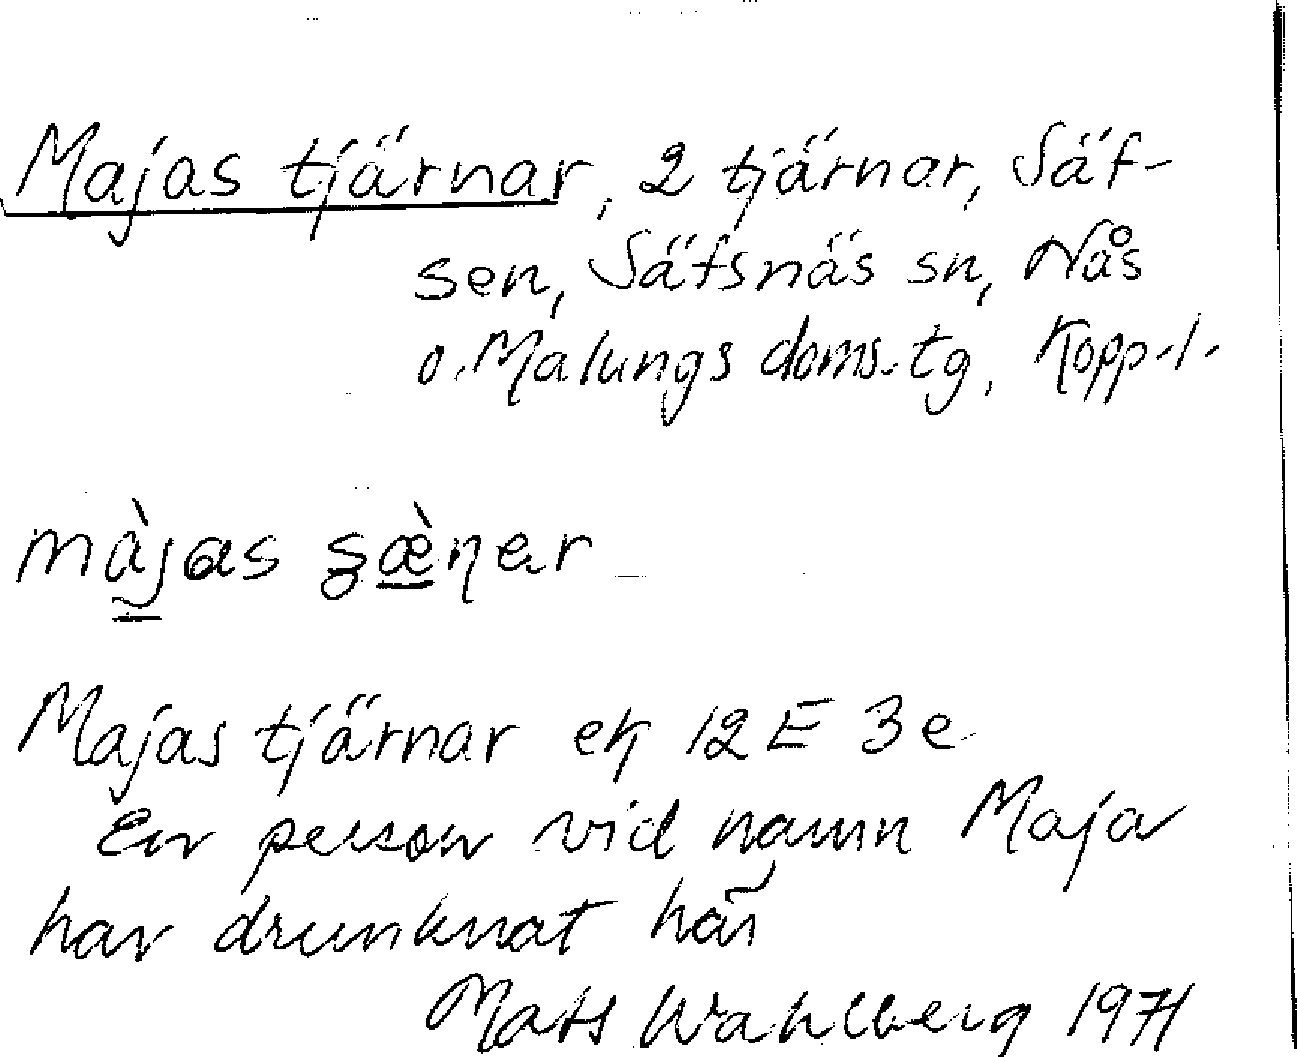 Majas tjärnar, 2 tjärnar, Säf-
sen, Säfsnäs sn, Nås
o. Malungs doms.tg, Kopp.l.
màjas ʂæ̀ɳer
Majas tjärnar ek 12E 3e
En person vid namn Maja
har drunknat här
Mats Wahlberg 1971